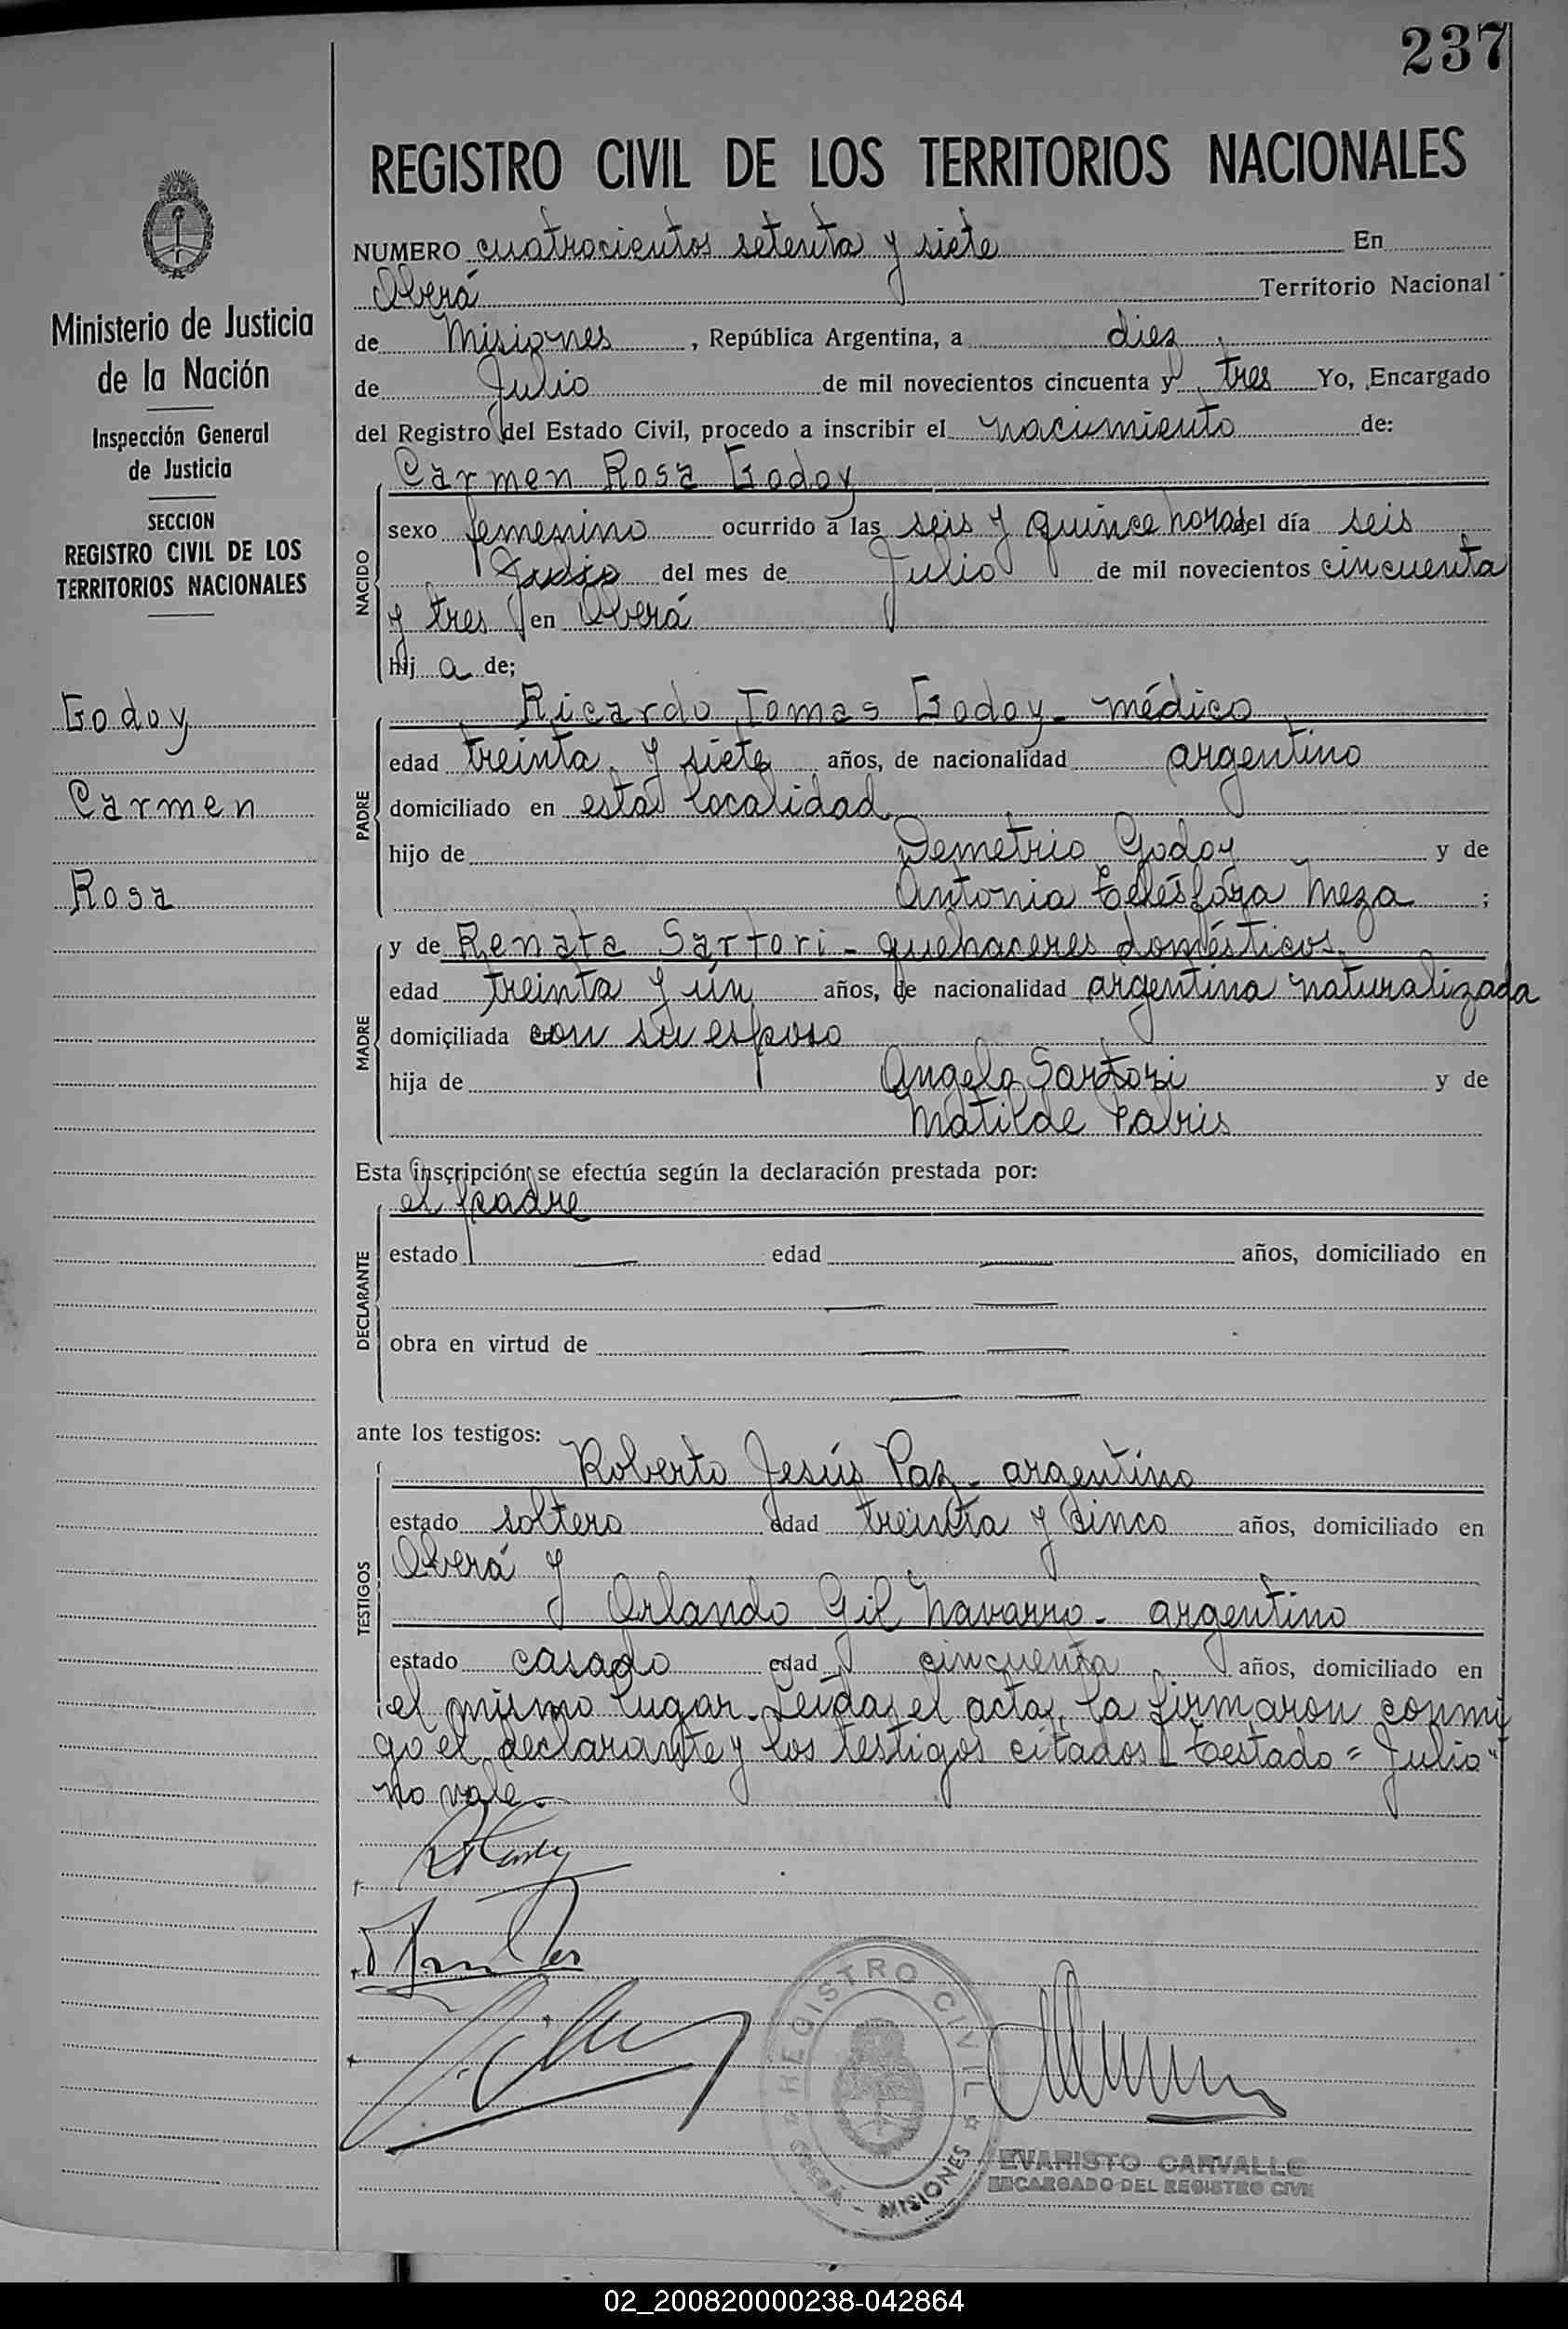 237
REGISTRO CIVIL DE LOS TERRITORIOS NACIONALES
Ministerio de Justicia
de la Nación
Inspección General
de Justicia
SECCION
REGISTRO CIVIL DE LOS
TERRITORIOS NACIONALES
Godoy
Carmen
Rosa
NUMERO cuatrocientos setenta y siete En
Oberá Territorio Nacional
de Misiones, República Argentina, a diez
de Julio de mil novecientos cincuenta y tres Yo, Encargado
del Registro del Estado Civil, procedo a inscribir el nacimiento de:
Carmen Rosa Godoy
NACIDO
sexo femenino ocurrido a las seis y quince horas del día seis
Julio del mes de Julio de mil novecientos cincuenta
y tres en Oberá
hij a de;
PADRE
Ricardo Tomas Godoy - médico
edad treinta y siete años, de nacionalidad argentino
domiciliado en esta localidad
hijo de Demetrio Godoy y de
Antonia Telésfora Meza ;
MADRE
y de Renata Sartori - quehaceres domésticos
edad treinta y ún años, de nacionalidad argentina naturalizada
domiciliada con su esposo
hija de Angelo Sartori y de
Matilde Fabris
Esta inscripción se efectúa según la declaración prestada por:
DECLARANTE
el padre
estado — edad — años, domiciliado en
— —
obra en virtud de — —
— —
ante los testigos:
TESTIGOS
Roberto Jesús Paz - argentino
estado soltero edad treinta y cinco años, domiciliado en
Oberá y
Orlando Gil Navarro - argentino
estado casado edad cincuenta años, domiciliado en
el mismo lugar. Leída el acta, la firmaron conmi
go el declarante y los testigos citados - Testado = Julio"
no vale.
REGISTRO CIVIL
OBERA - MISIONES
EVARISTO CARVALLO
ENCARGADO DEL REGISTRO CIVIL
02_200820000238-042864